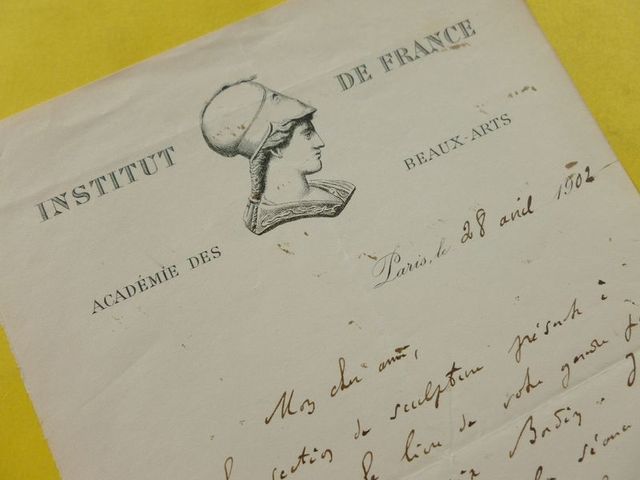 INSTITUT DE FRANCE
ACADÉMIE DES BEAUX-ARTS
Paris, le 28 avril 1902
Mon cher ami,
section de sculpture présente à
le livre de votre gendre
Bordin
la séance